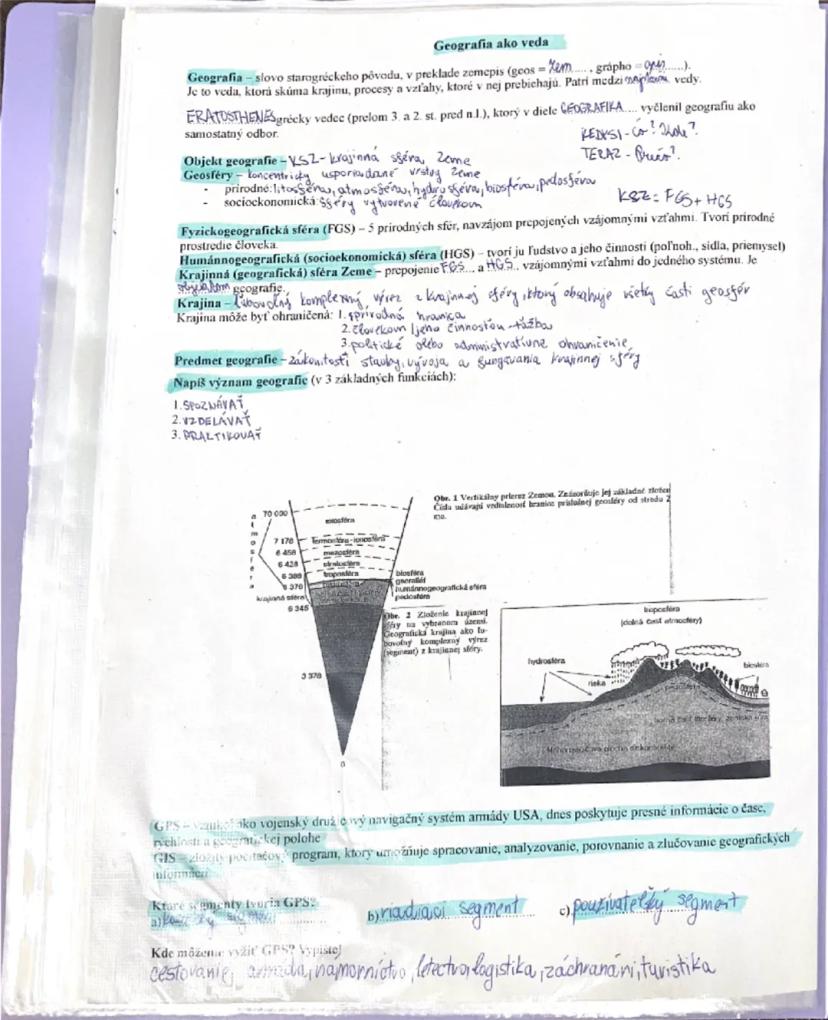 Geografia ako veda
Geografia – slovo starogréckeho pôvodu, v preklade zemepis (geos = Zem....., grápho = opis......).
Je to veda, ktorá skúma krajinu, procesy a vzťahy, ktoré v nej prebiehajú. Patrí medzi vedy.
ERATOSTHENES grécky vedec (prelom 3. a 2. st. pred n.l.), ktorý v diele GEOGRAFIKA.... vyčlenil geografiu ako
samostatný odbor.
KEDYSI - Čo? Kde?
TERAZ - Prečo?
Objekt geografie – KSZ - krajinná sféra Zeme
Geosféry – koncentricky usporiadané vrstvy Zeme
- prírodné: litosféra, atmosféra, hydrosféra, biosféra, pedosféra
- socioekonomická: sféry vytvorené človekom
KSZ = FGS + HGS
Fyzickogeografická sféra (FGS) – 5 prírodných sfér, navzájom prepojených vzájomnými vzťahmi. Tvorí prírodné
prostredie človeka.
Humánnogeografická (socioekonomická) sféra (HGS) – tvorí ju ľudstvo a jeho činnosti (poľnoh., sídla, priemysel)
Krajinná (geografická) sféra Zeme – prepojenie FGS.... a HGS.. vzájomnými vzťahmi do jedného systému. Je
objektom geografie.
Krajina – ľubovoľný komplexný výrez z krajinnej sféry, ktorý obsahuje všetky časti geosfér
Krajina môže byť ohraničená: 1. prírodná hranica
2. človekom jeho činnosťou - ťažba
3. politické alebo administratívne ohraničenie
Predmet geografie – zákonitosti stavby, vývoja a fungovania krajinnej sféry
Napíš význam geografie (v 3 základných funkciách):
1. SPOZNÁVAŤ
2. VZDELÁVAŤ
3. PRAKTIKOVAŤ
Obr. 1 Vertikálny prierez Zemou. Znázorňuje jej základné zložen
Čísla udávajú vzdialenosť hranice príslušnej geosféry od stredu Z
me.
atmosféra
70 000
exosféra
7 178
Termosféra-ionosféra
6 458
mezosféra
6 428
stratosféra
6 388
troposféra
6 378
krajinná sféra
6 345
biosféra
georeliéf
humánnogeografická sféra
pedosféra
3 378
0
Obr. 2 Zloženie krajinnej
sféry na vybranom území.
Geografická krajina ako ľu-
bovoľný komplexný výrez
(segment) z krajinnej sféry.
troposféra
(dolná časť atmosféry)
hydrosféra
rieka
biosféra
GPS – vznikol ako vojenský družicový navigačný systém armády USA, dnes poskytuje presné informácie o čase,
rýchlosti a geografickej polohe
GIS – zložitý počítačový program, ktorý umožňuje spracovanie, analyzovanie, porovnanie a zlučovanie geografických
informácií
Ktoré segmenty tvoria GPS?
a) segment b) riadiaci segment c) používateľský segment
Kde môžeme využiť GPS? Vypíšte
cestovanie, armáda, námorníctvo, letectvo, logistika, záchranári, turistika